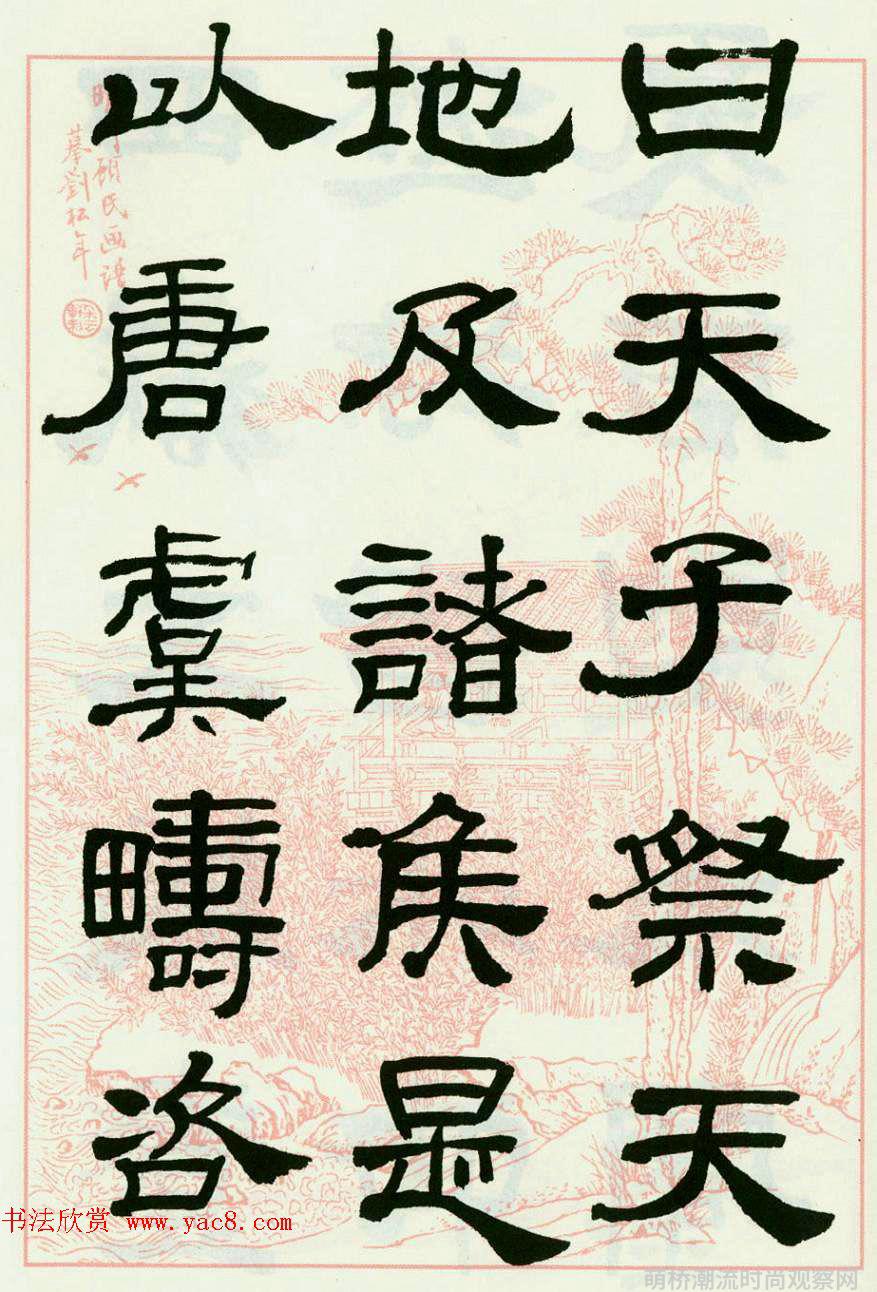 曰天子祭天
地及諸侯是
以唐虞疇咨
顾氏画譜
摹劉松年
书法欣赏 www.yac8.com
萌桥潮流时尚观察网